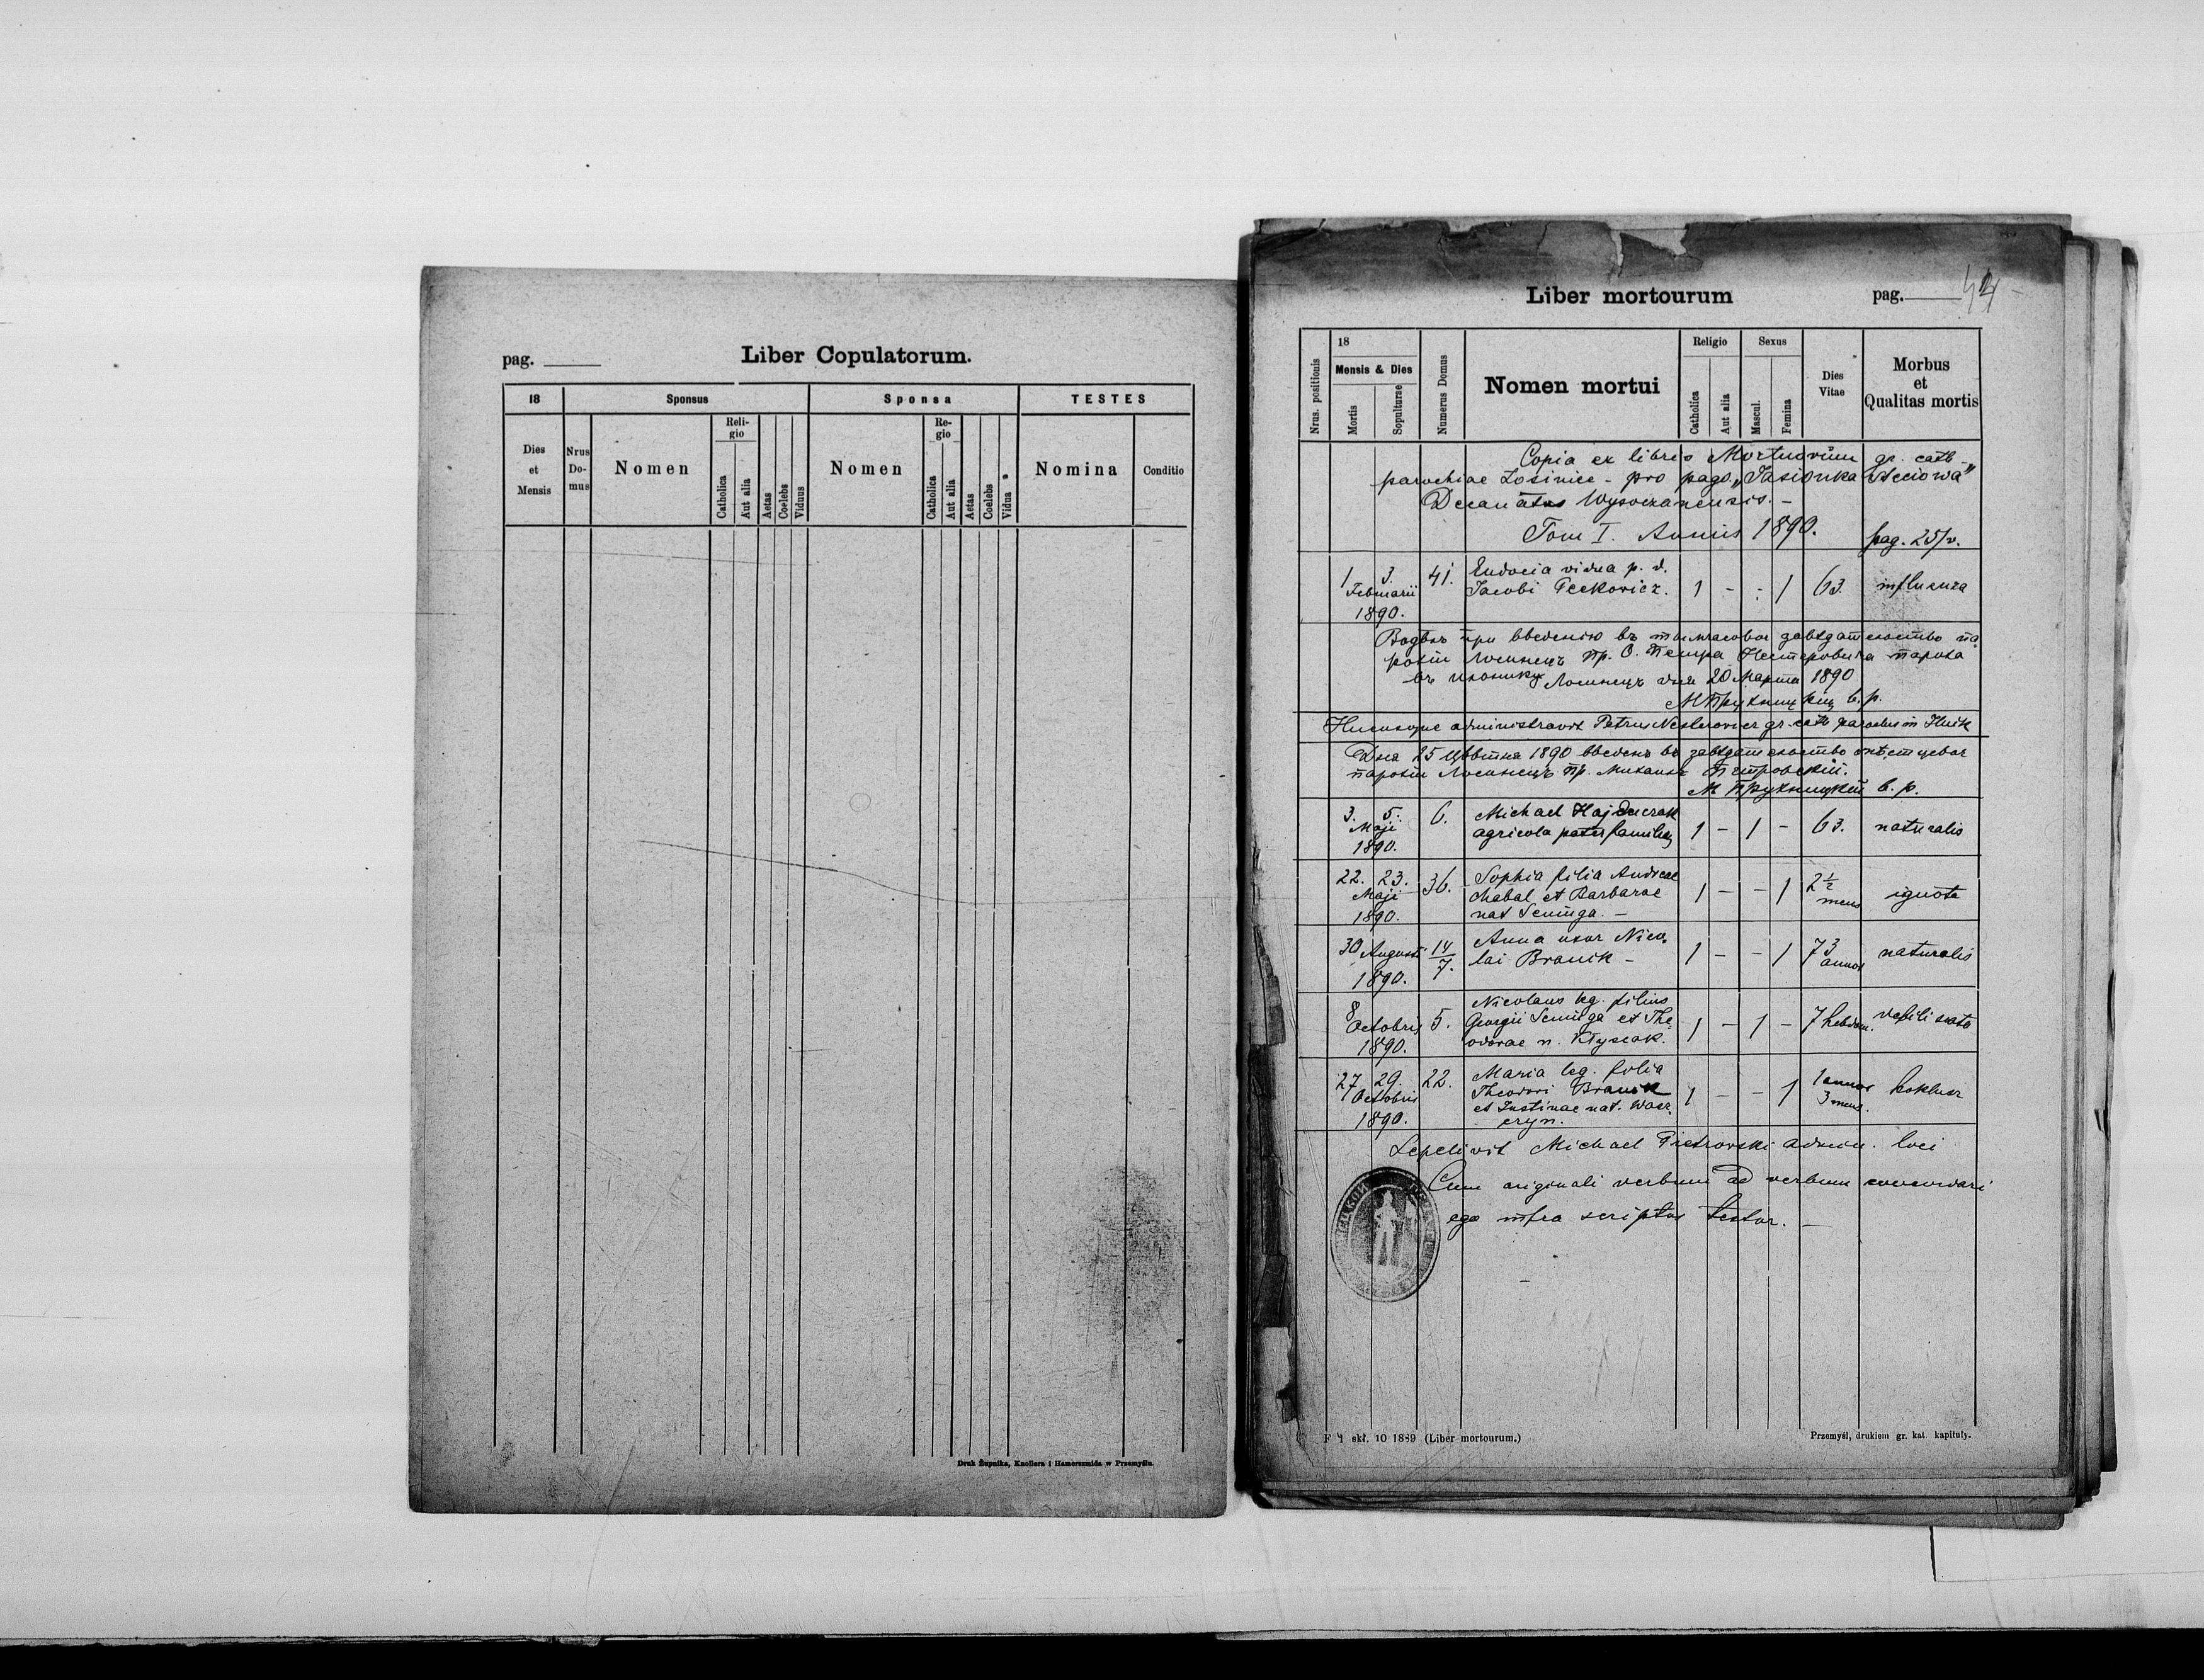 pag.
Liber Copulatorum.
18
Sponsus
Sponsa
TESTES
Dies et Mensis
Nrus Domus
Nomen
Religio
Catholica
Aut alia
Aetas
Coelebs
Viduus
Nomen
Regio
Catholica
Aut alia
Aetas
Coelebs
Vidua
Nomina
Conditio
Druk Żupnika, Knollera i Hamerszmida w Przemyślu.
Liber mortourum
pag. 44
Nrus. positionis
18
Mensis & Dies
Mortis
Sopulturae
Numerus Domus
Nomen mortui
Religio
Catholica
Aut alia
Sexus
Mascul.
Femina
Dies Vitae
Morbus
et
Qualitas mortis
Copia ex libris Mortuorum gr. cath
parochiae Łosinice - pro pago "Jasionka Steciowa"
Decanatus Wysoczanensis. -
Tom I. Annus 1890. pag. 25/v.
1 3. 41. Eudocia vidua p. d.
Februarii Jacobi Feckovicz. 1 - - 1 63. influenza
1890.
парохіи Лосинецъ пр. О. Петра Нестеровича пароха
Лосинецъ дня 20 Марта 1890
Hucusque administravit Petrus Nesterovicz gr. cath parochus in Hnik
Дня 25 Цвѣтня 1890 введенъ въ завѣдательство
парохіи Лосинецъ пр. Михаилъ Петровскій.
М Прухницкій в. р.
3. 5. 6. Michael Hajduczak
Maji agricola pater familiae 1 - 1 - 63. naturalis
1890.
22. 23. 36. Sophia filia Andreae
Maji Chabal et Barbarae 1 - - 1 2 1/2 mens ignota
1890. nat Seniuga. -
30 Augusti 14/7. Anna uxor Nico-
1890. lai Branik - 1 - - 1 73 annos naturalis
8 Nicolaus leg. filius
Octobris 5. Georgii Seniuga et The- 1 - 1 - 7 hebdom.
1890. odorae n. Kłysiak.
27 29. 22. Maria leg. filia
Octobris Theodori Branik 1 - - 1 1 annus 3 mens. koklusz
1890. et Justinae nat. Wasz-
czyn.
Sepelivit Michael Pietrovski admin. loci
Cum originali verbum ad verbum concordari
ego infra scriptus testor. -
F 1 skł. 10 1889 (Liber mortourum.)
Przemyśl, drukiem gr. kat. kapituły.